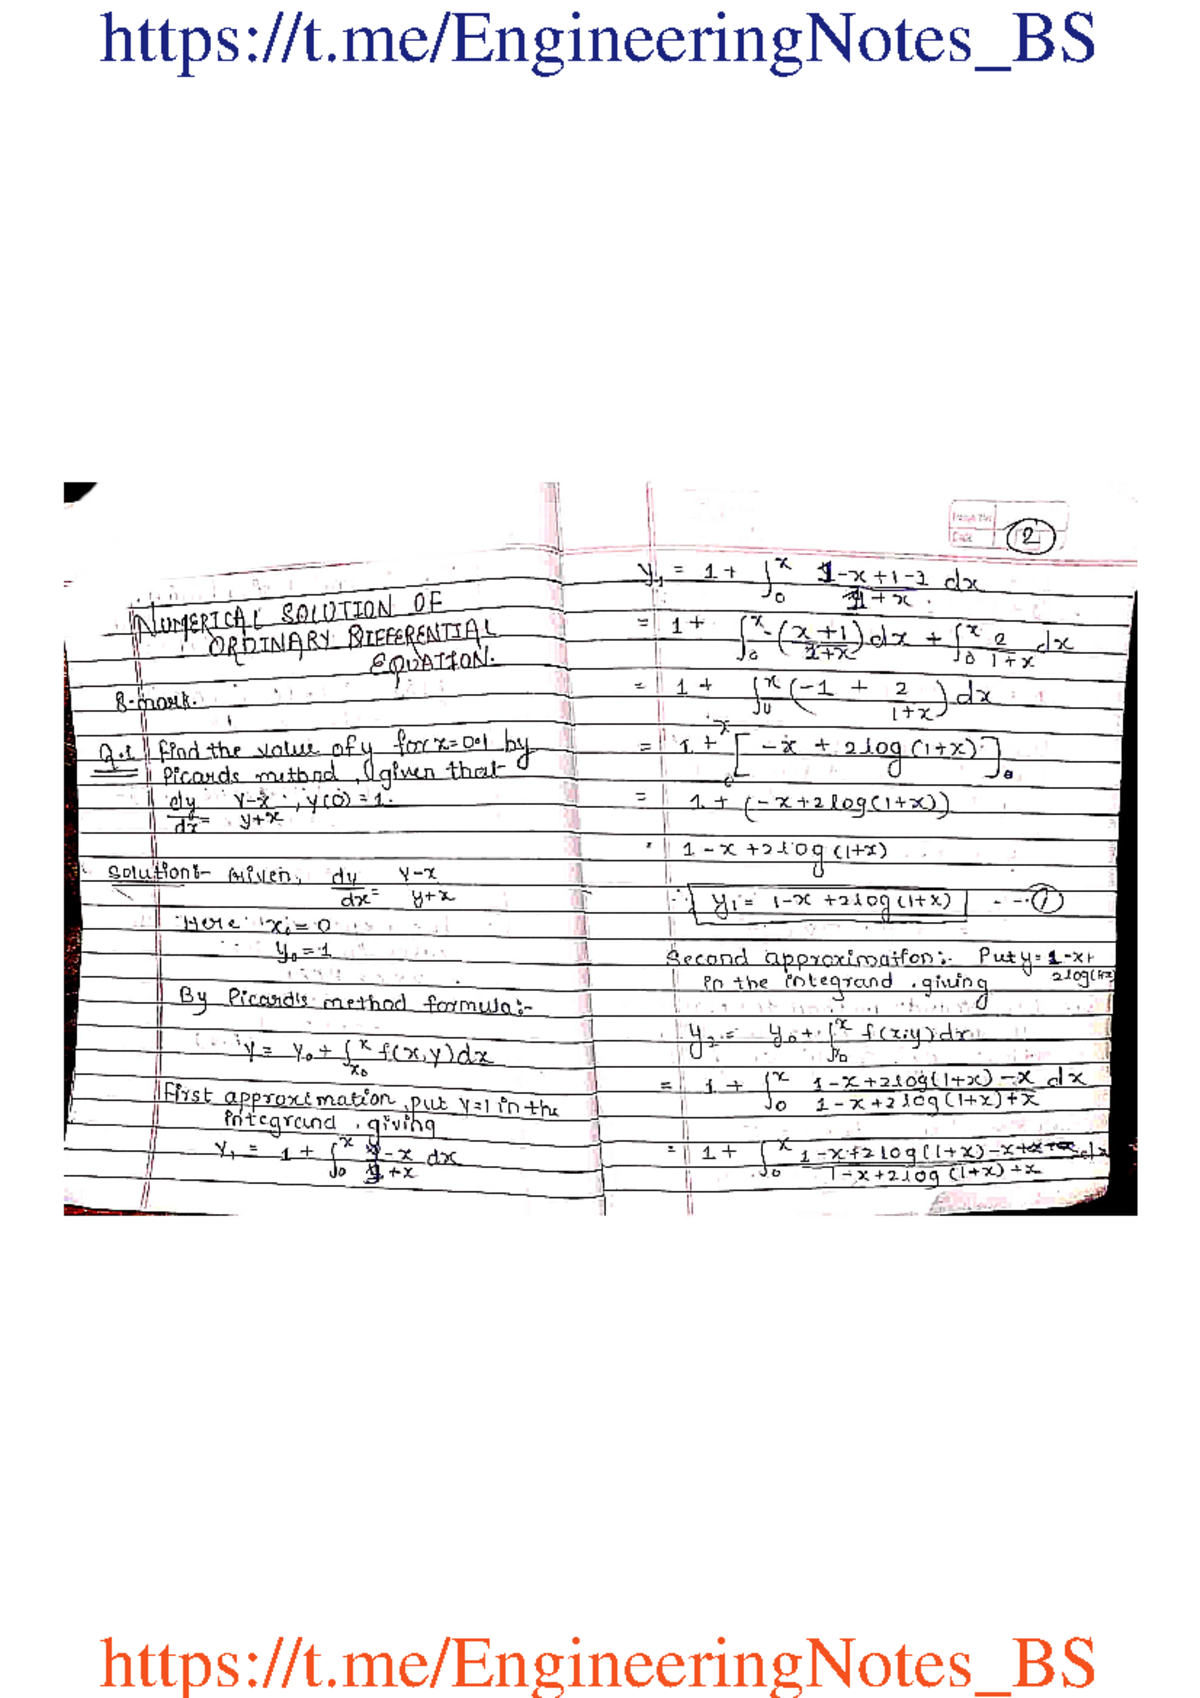 https://t.me/EngineeringNotes_BS
NUMERICAL SOLUTION OF
ORDINARY DIFFERENTIAL
EQUATION.
8-mark.
Q.1 Find the value of y for x=0.1 by
Picards method, given that
dy/dx = y-x/y+x , y(0)=1.
Solution:- Given, dy/dx = y-x/y+x
Here xi = 0
y0 = 1
By Picard's method formula:-
y = y0 + ∫x0^x f(x,y)dx
First approximation, put y=1 in the
integrand, giving
y1 = 1 + ∫0^x 1-x/1+x dx
2
y1 = 1 + ∫0^x 1-x+1-1/1+x dx
= 1 + ∫0^x -(x+1/1+x)dx + ∫0^x 2/1+x dx
= 1 + ∫0^x (-1 + 2/1+x) dx
= 1 + [-x + 2log(1+x)]0
= 1 + (-x+2log(1+x))
1-x+2log(1+x)
∴ y1 = 1-x+2log(1+x) ---①
Second approximation:- Put y= 1-x+
2log(1+x)
in the integrand, giving
y2 = y0 + ∫x0^x f(x,y)dx
= 1 + ∫0^x 1-x+2log(1+x)-x/1-x+2log(1+x)+x dx
= 1 + ∫0^x 1-x+2log(1+x)-x/1-x+2log(1+x)+x dx
https://t.me/EngineeringNotes_BS